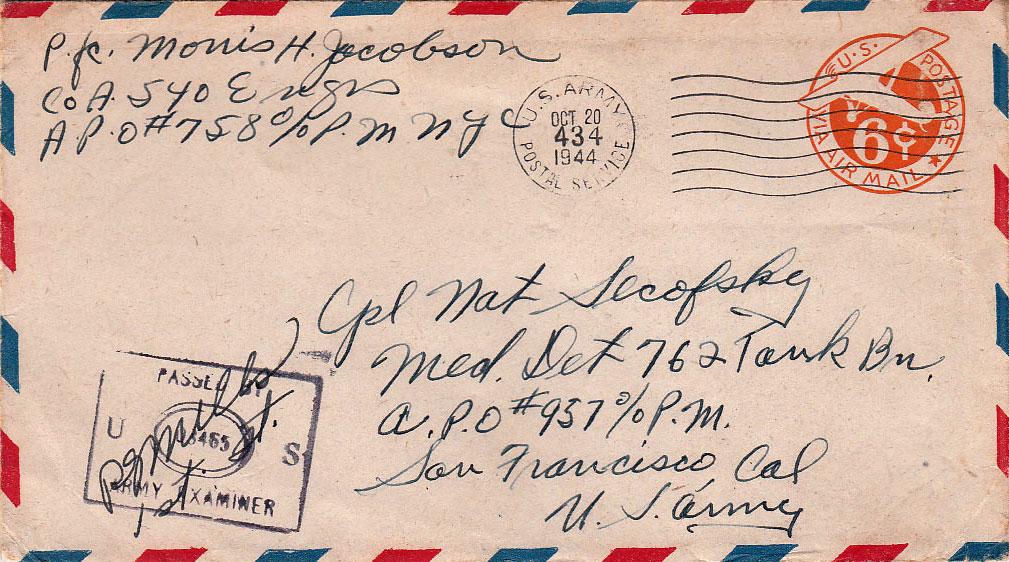 P.fc. Morris H. Jacobson
Co A. 540 Engrs
A.P.O #758 c/o P.M NYC
U.S. ARMY
OCT 20
434
1944
POSTAL SERVICE
U.S. POSTAGE
6¢
VIA AIR MAIL
Cpl Nat Secofsky
Med. Det 762 Tank Bn.
A.P.O #937 c/o P.M.
San Francisco Cal
U.S. Army
PASSED BY
U S
ARMY EXAMINER
1st. Lt.